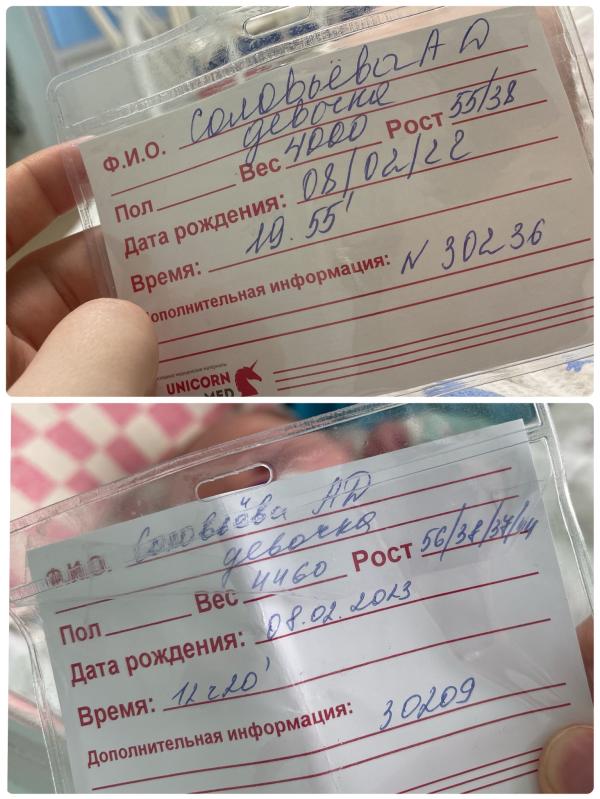 Ф.И.О. Соловьёва А Д
девочка
Пол Вес 4000 Рост 55/38
Дата рождения: 08/02/22
Время: 19.55'
ополнительная информация: N 30236
UNICORN
MED
Ф.И.О. Соловьёва АД
девочка
Пол Вес 4460 Рост 56/38/37/
Дата рождения: 08.02.2023
Время: 12 ч 20'
Дополнительная информация: 30209